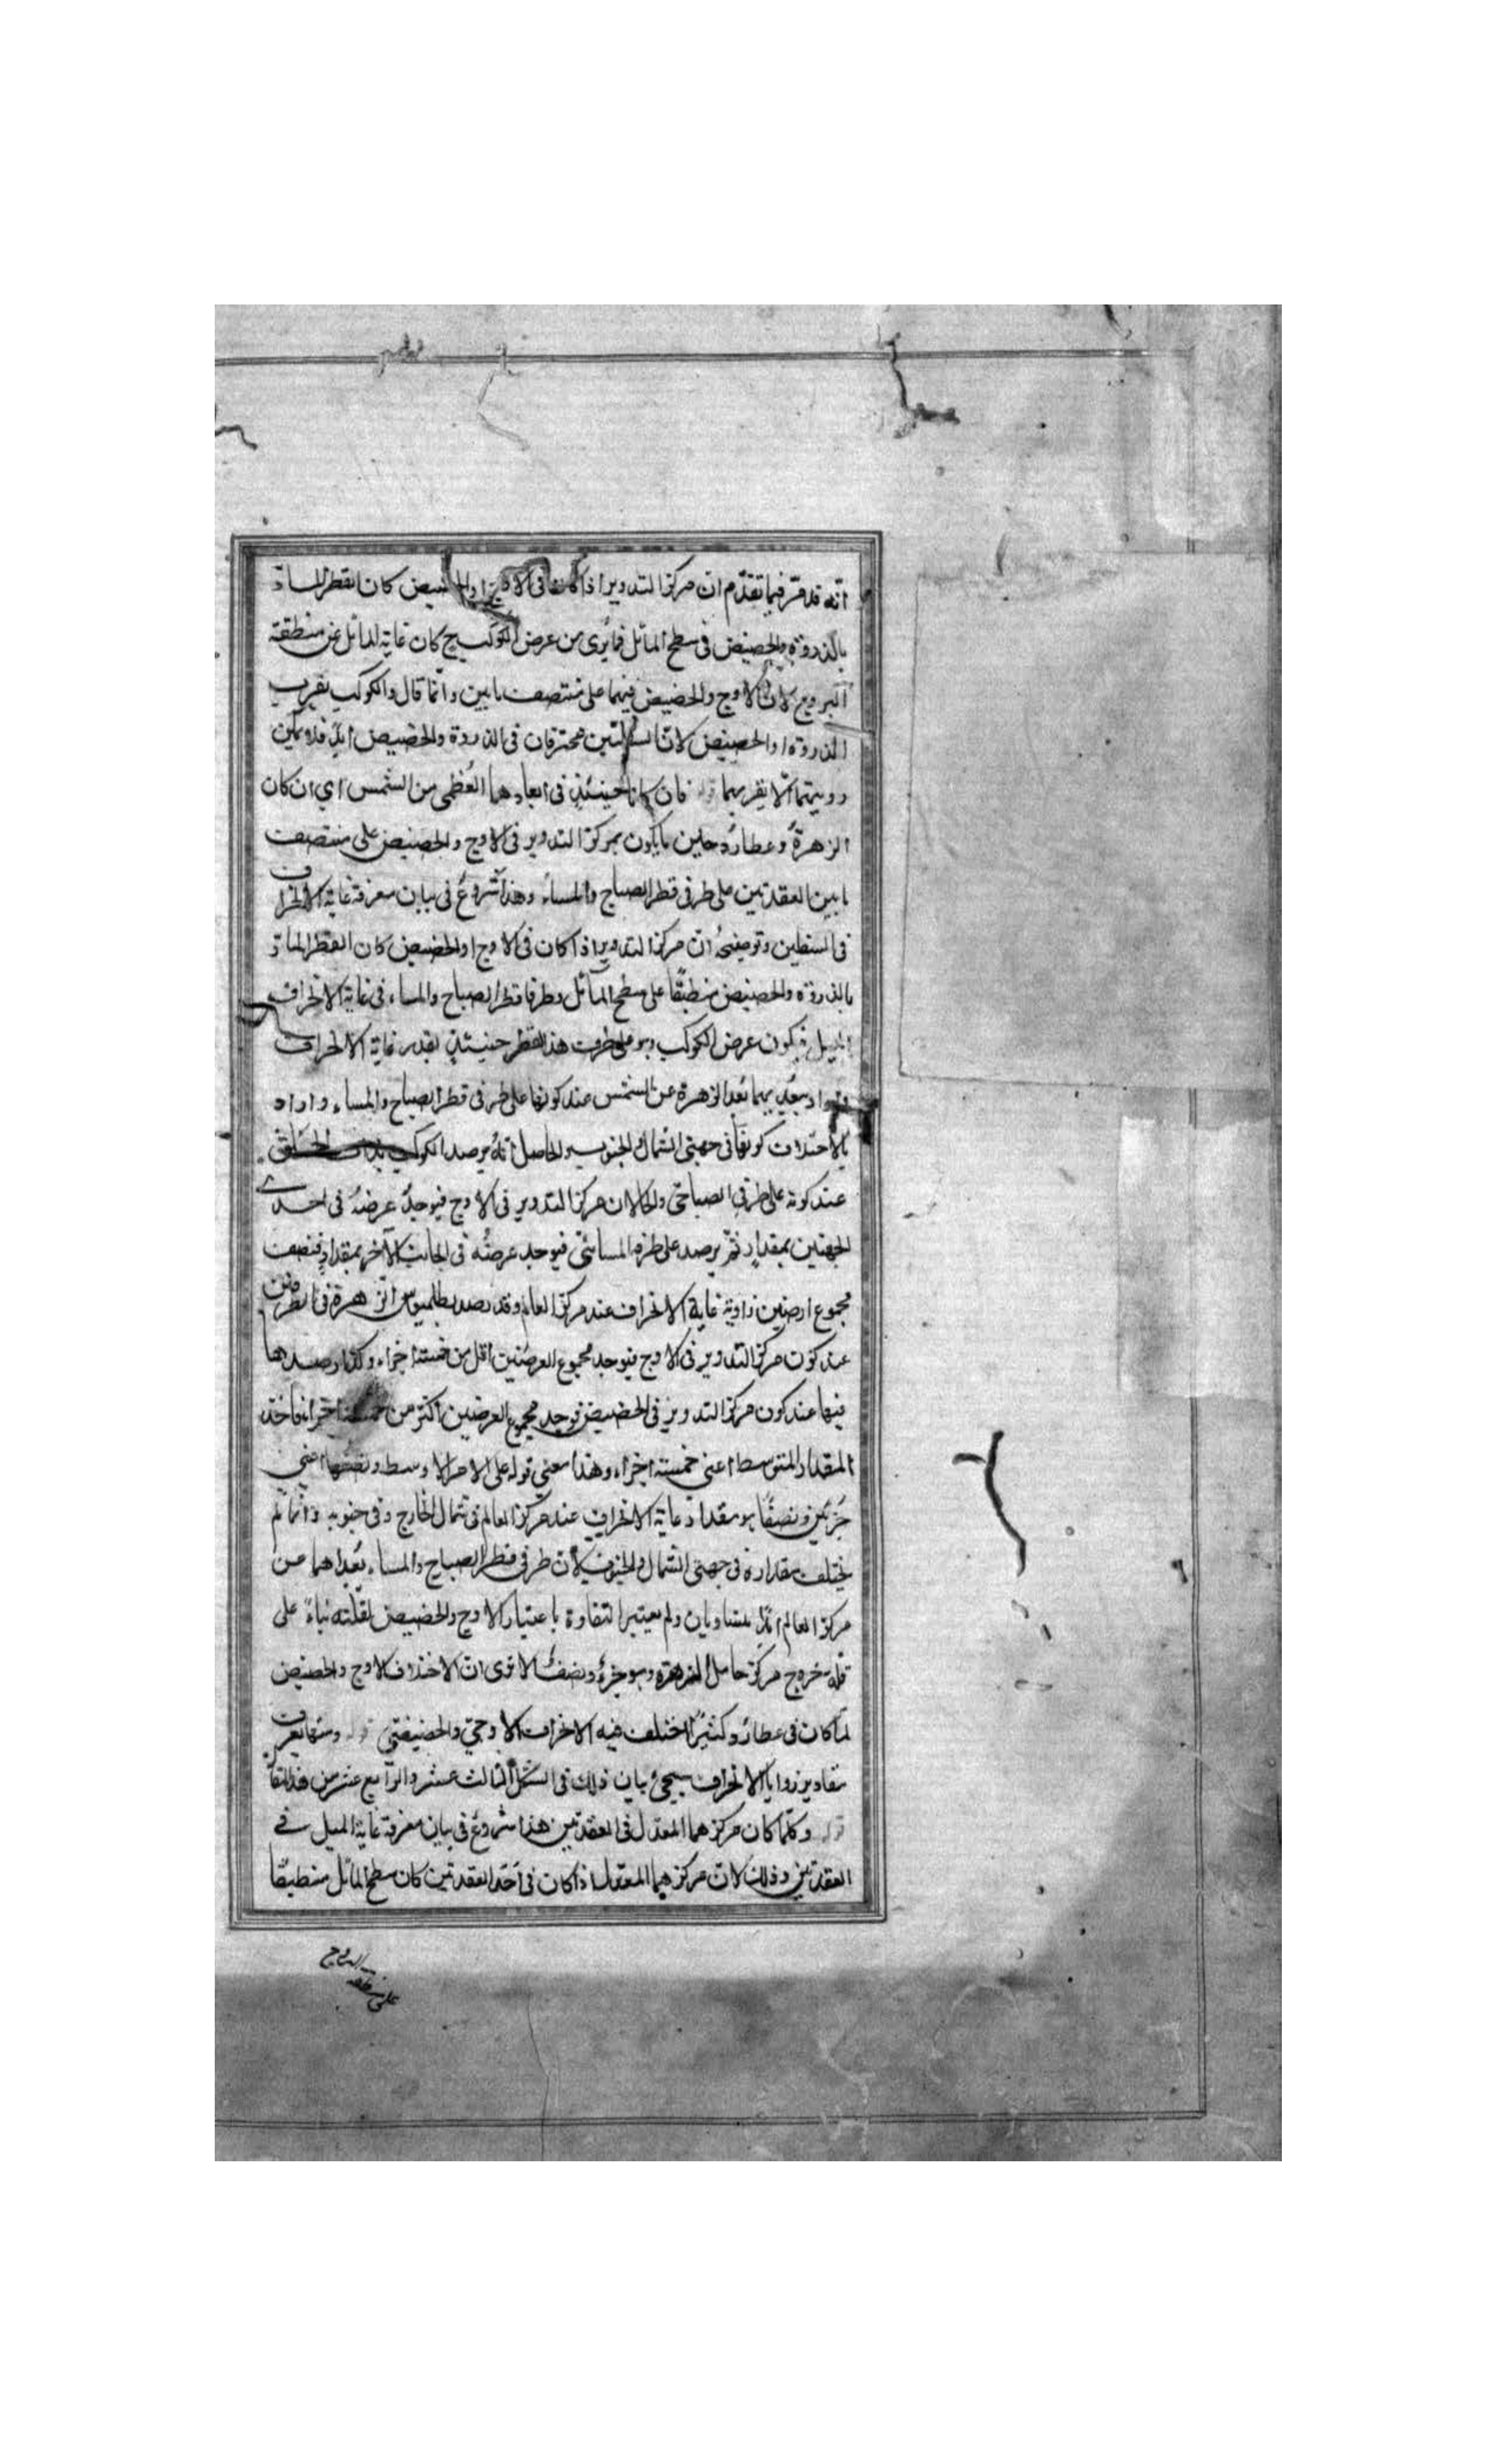 انّه قد مرّ فيما تقدّم ان مركز التدوير اذا كان فى الاوج او الحضيض كان القطر المارّ
بالذروة والحضيض فى سطح المائل فما يُرى من عرض الكوكب ح كان غاية المائل عن منطقة
البروج لان الاوج والحضيض فيهما على منتصف ما بين وانّما قال والكوكب بقرب
الذروة او الحضيض لانّ السفليّين محترقان فى الذروة والحضيض ابدًا فلا يمكن
رويتهما الّا بقربهما قوله فان كانا حينئذٍ فى ابعادهما العُظمى من الشمس اي ان كان
الزهرة وعطارد حين ما يكون مركز التدوير فى الاوج والحضيض على منتصف
ما بين العقدتين على طرفى قطر الصباح والمساء وهذا شروع فى بيان معرفة غاية الانحراف
فى السفلين وتوضيحه ان مركز التدوير اذا كان فى الاوج او الحضيض كان القطر المارّ
بالذروة والحضيض منطبقًا على سطح المائل وطرفا قطر الصباح والمساء فى غاية الانحراف
الميل فيكون عرض الكوكب وهو على طرف هذا القطر حينئذٍ بقدر غاية الانحراف
واراد ببعديهما بُعد الزهرة عن الشمس عند كونها على طرفى قطر الصباح والمساء واراد
بالاختلاف كونها فى جهتى الشمال والجنوب والحاصل انّه يرصد الكوكب بذات الحلق
عند كونه على طرفه الصباحى والحال ان مركز التدوير فى الاوج فيوجد عرضه فى احدى
الجهتين بمقدارٍ ثمّ يرصد على طرفه المسائىّ فيوجد عرضُه فى الجانب الآخر بمقدارٍ فنصف
مجموع ارضين زاوية غاية الانحراف عند مركز العالم وقد رصد بطلميوس الزهرة فى الطرفين
عند كون مركز التدوير فى الاوج فيوجد مجموع العرضين اقل من خمسة اجزاء وكذا رصدها
فيهما عند كون مركز التدوير فى الحضيض فوجد مجموع العرضين اكثر من خمسة اجزاء فاخذ
المقدار المتوسط اعنى خمسة اجزاء وهذا معنى قوله على الامر الاوسط ونصفها اعنى
جُزئين ونصفًا هو مقدار غاية الانحراف عند مركز العالم فى شمال الخارج وفى جنوبه وانّما لم
يختلف مقداره فى جهتى الشمال والجنوب لان طرفى قطر الصباح والمساء بُعداهما عن
مركز العالم ابدًا متساويان ولم يعتبر التفاوة باعتبار الاوج والحضيض لقلّته بناءً على
قلة خروج مركز حامل الزهرة وهو جزء ونصفٌ الا ترى ان الاختلاف الاوج والحضيض
لمّا كان فى عطارد كثيرًا اختلف فيه الانحراف الاوجىّ والحضيضىّ قوله وسنعرف
مقادير زوايا الانحراف سيجئ بيان ذلك فى الشكل الثالث عشر والرابع عشر من هذا المقا
قوله وكلما كان مركزهما المعدل فى العقدتين هذا شروع فى بيان معرفة غاية الميل فى
العقدتين وذلك لان مركزهما المعدل اذا كان فى احد العقدتين كان سطح المائل منطبقًا
على منطقة البروج